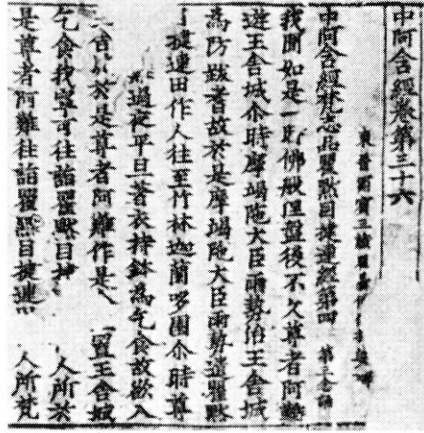 中阿含經卷第三十六
東晉罽賓三藏瞿曇
中阿含經梵志品瞿默目揵連經第四 第三念誦
我聞如是一時佛般涅盤後不久尊者阿難
遊王舍城尒時摩竭陁大臣雨勢治王舍城
為防跋耆故於是摩竭陁大臣雨勢遣瞿默
揵連田作人往至竹林迦蘭哆園尒時尊
過夜平旦著衣持鉢為乞食故欲入
舍於是尊者阿難作是 置王舍城
乞食我寧可往詣瞿默目揵 人所於
是尊者阿難往詣瞿默目揵連 人所梵